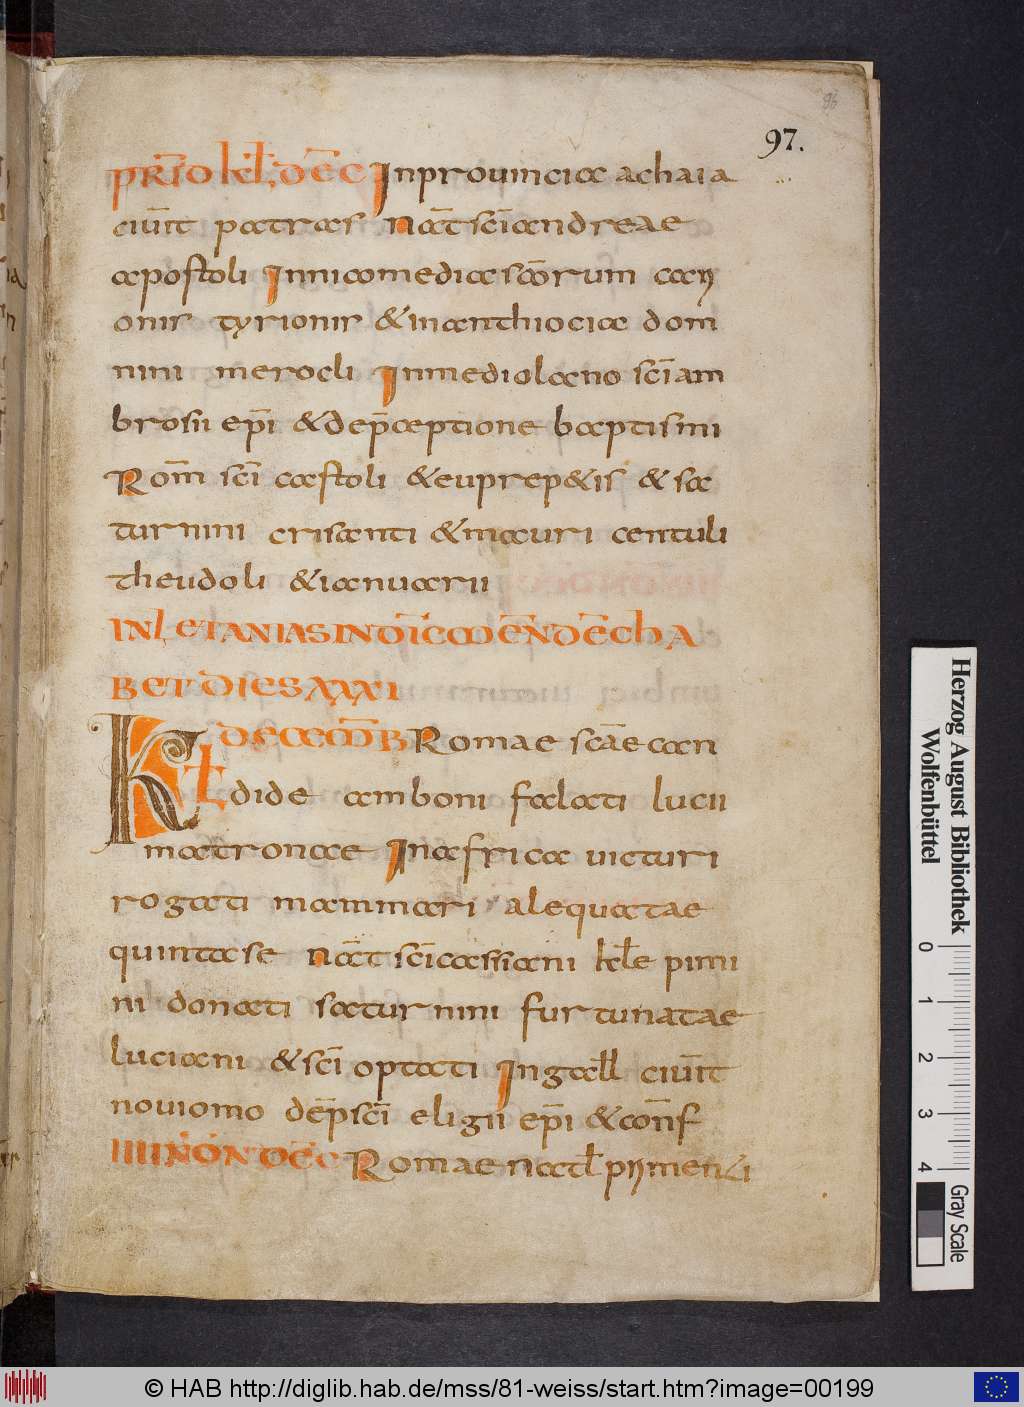 96
97.
PRĪDO kł. DĒC Inprouincia achaia
ciuīt patras nat̄ sc̄i andreae
apostoli Innicomedia sc̄orum cary
onis tyrionis & inanthiocia dom
nini merocli Inmediolano sc̄i am
brosii ep̄i & dep̄ aeptione baptismi
Rom̄ sc̄i castoli & euprep&is & sa
turnini crisanti & mauri centuli
theudoli & ianuarii
INLETANIAS INDĪC MĒN DĒC hA
BET DIES XXXI
Kł DECEM̄B Romae sc̄ae can
dide amboni falati lucii
matronae In africa uicturi
rogati mammari alequatae
quintase nat̄ sc̄i cassiani kłe pimi
ni donati saturnini furtunatae
luciani & sc̄i optati In gałł ciuīt
nouiomo dēp sc̄i eligii ep̄i & con̄f
IIII NON DĒC Romae natł pymeni
Herzog August Bibliothek
Wolfenbüttel
0 1 2 3 4
Gray Scale
© HAB http://diglib.hab.de/mss/81-weiss/start.htm?image=00199